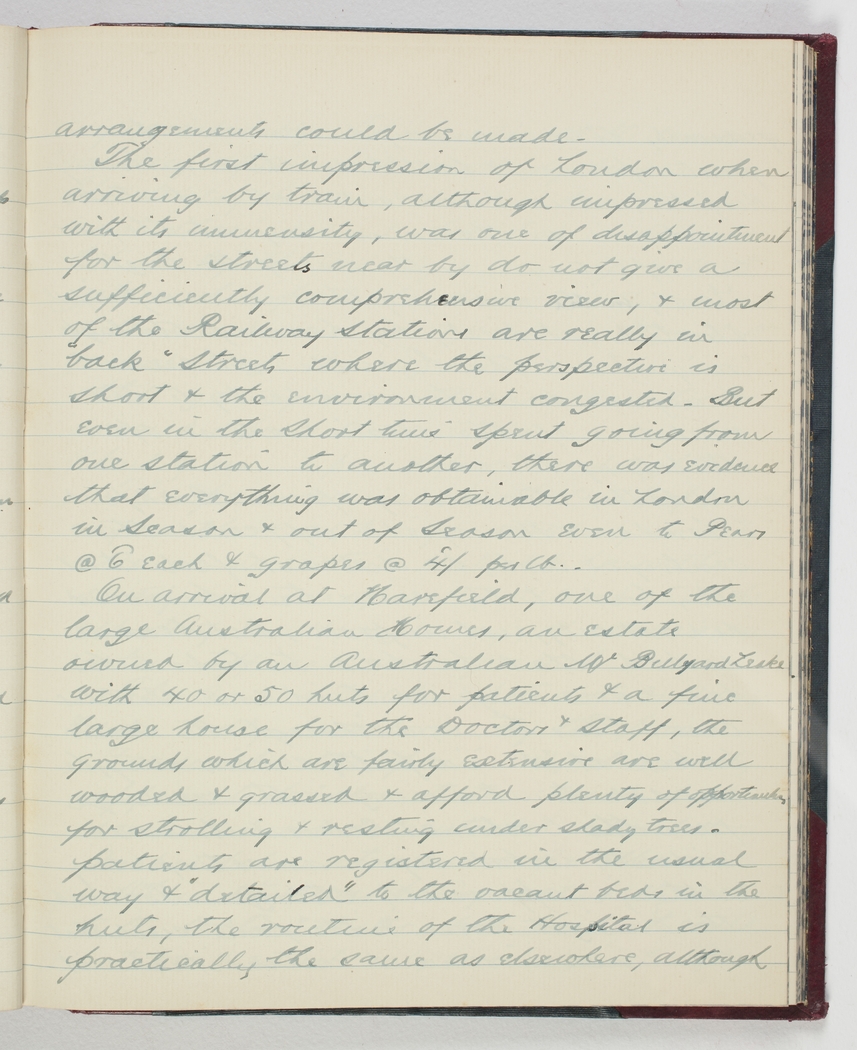 arrangements could be made -
The first impression of London when
arriving by train, although impressed
with its immensity, was one of disappointment
for the streets near by do not give a
sufficiently comprehensive view, & most
of the Railway stations are really in
"back" streets where the perspective is
short & the environment congested - But
even in the short time spent going from
one station to another, there was evidence
that everything was obtainable in London
in season & out of season even to Pears
@ 6 each & grapes @ 4/ per lb..
On arrival at Harefield, one of the
large Australian Homes, an estate
owned by an Australian Mr Billyard Leake
with 40 or 50 huts for patients & a fine
large house for the Doctors & staff, the
grounds which are fairly extensive are well
wooded & grassed & afford plenty of opportunities
for strolling & resting under shady trees.
patients are registered in the usual
way & "detailed" to the vacant beds in the
huts, the routine of the Hospital is
practically the same as elsewhere, although